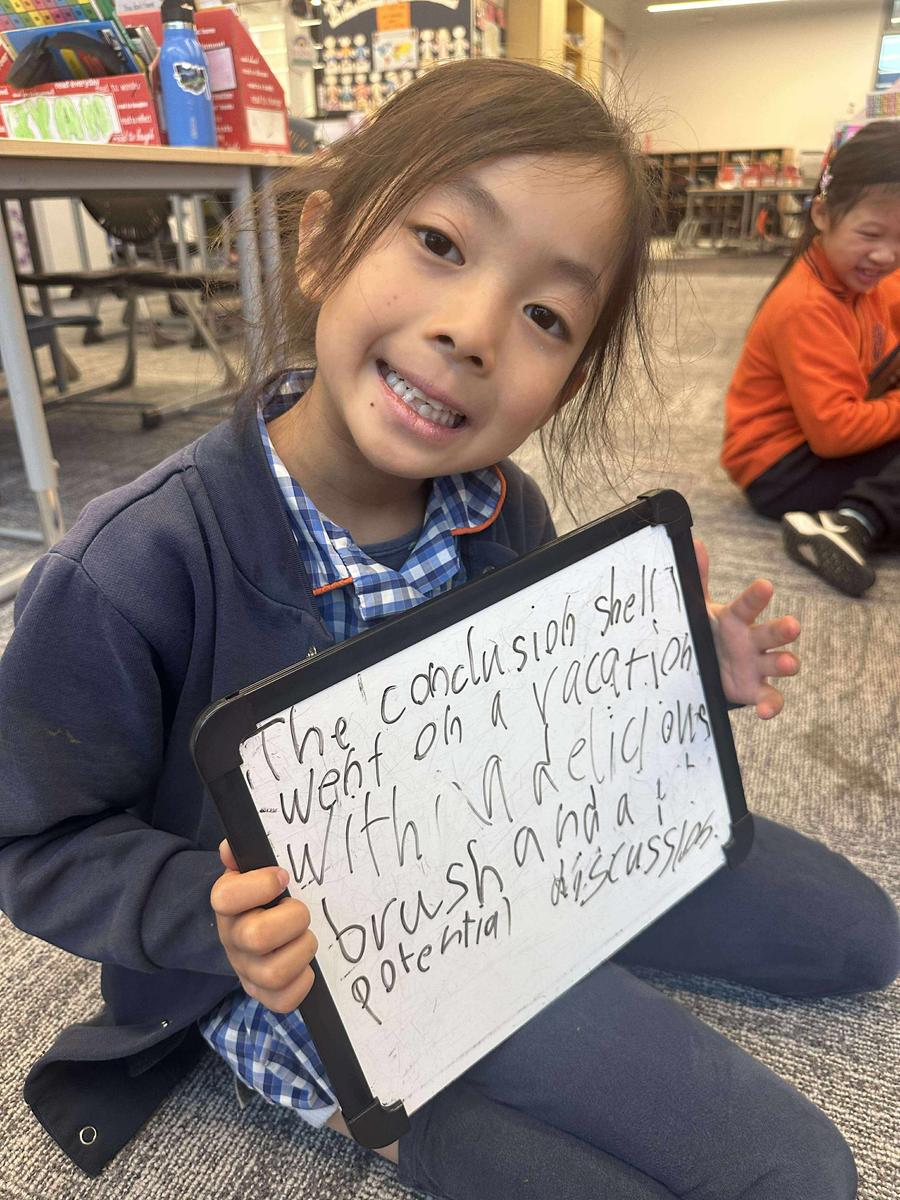 The conclusion shell
went on a vacation
with a delicious
brush and a
potential discussion.
read everyday